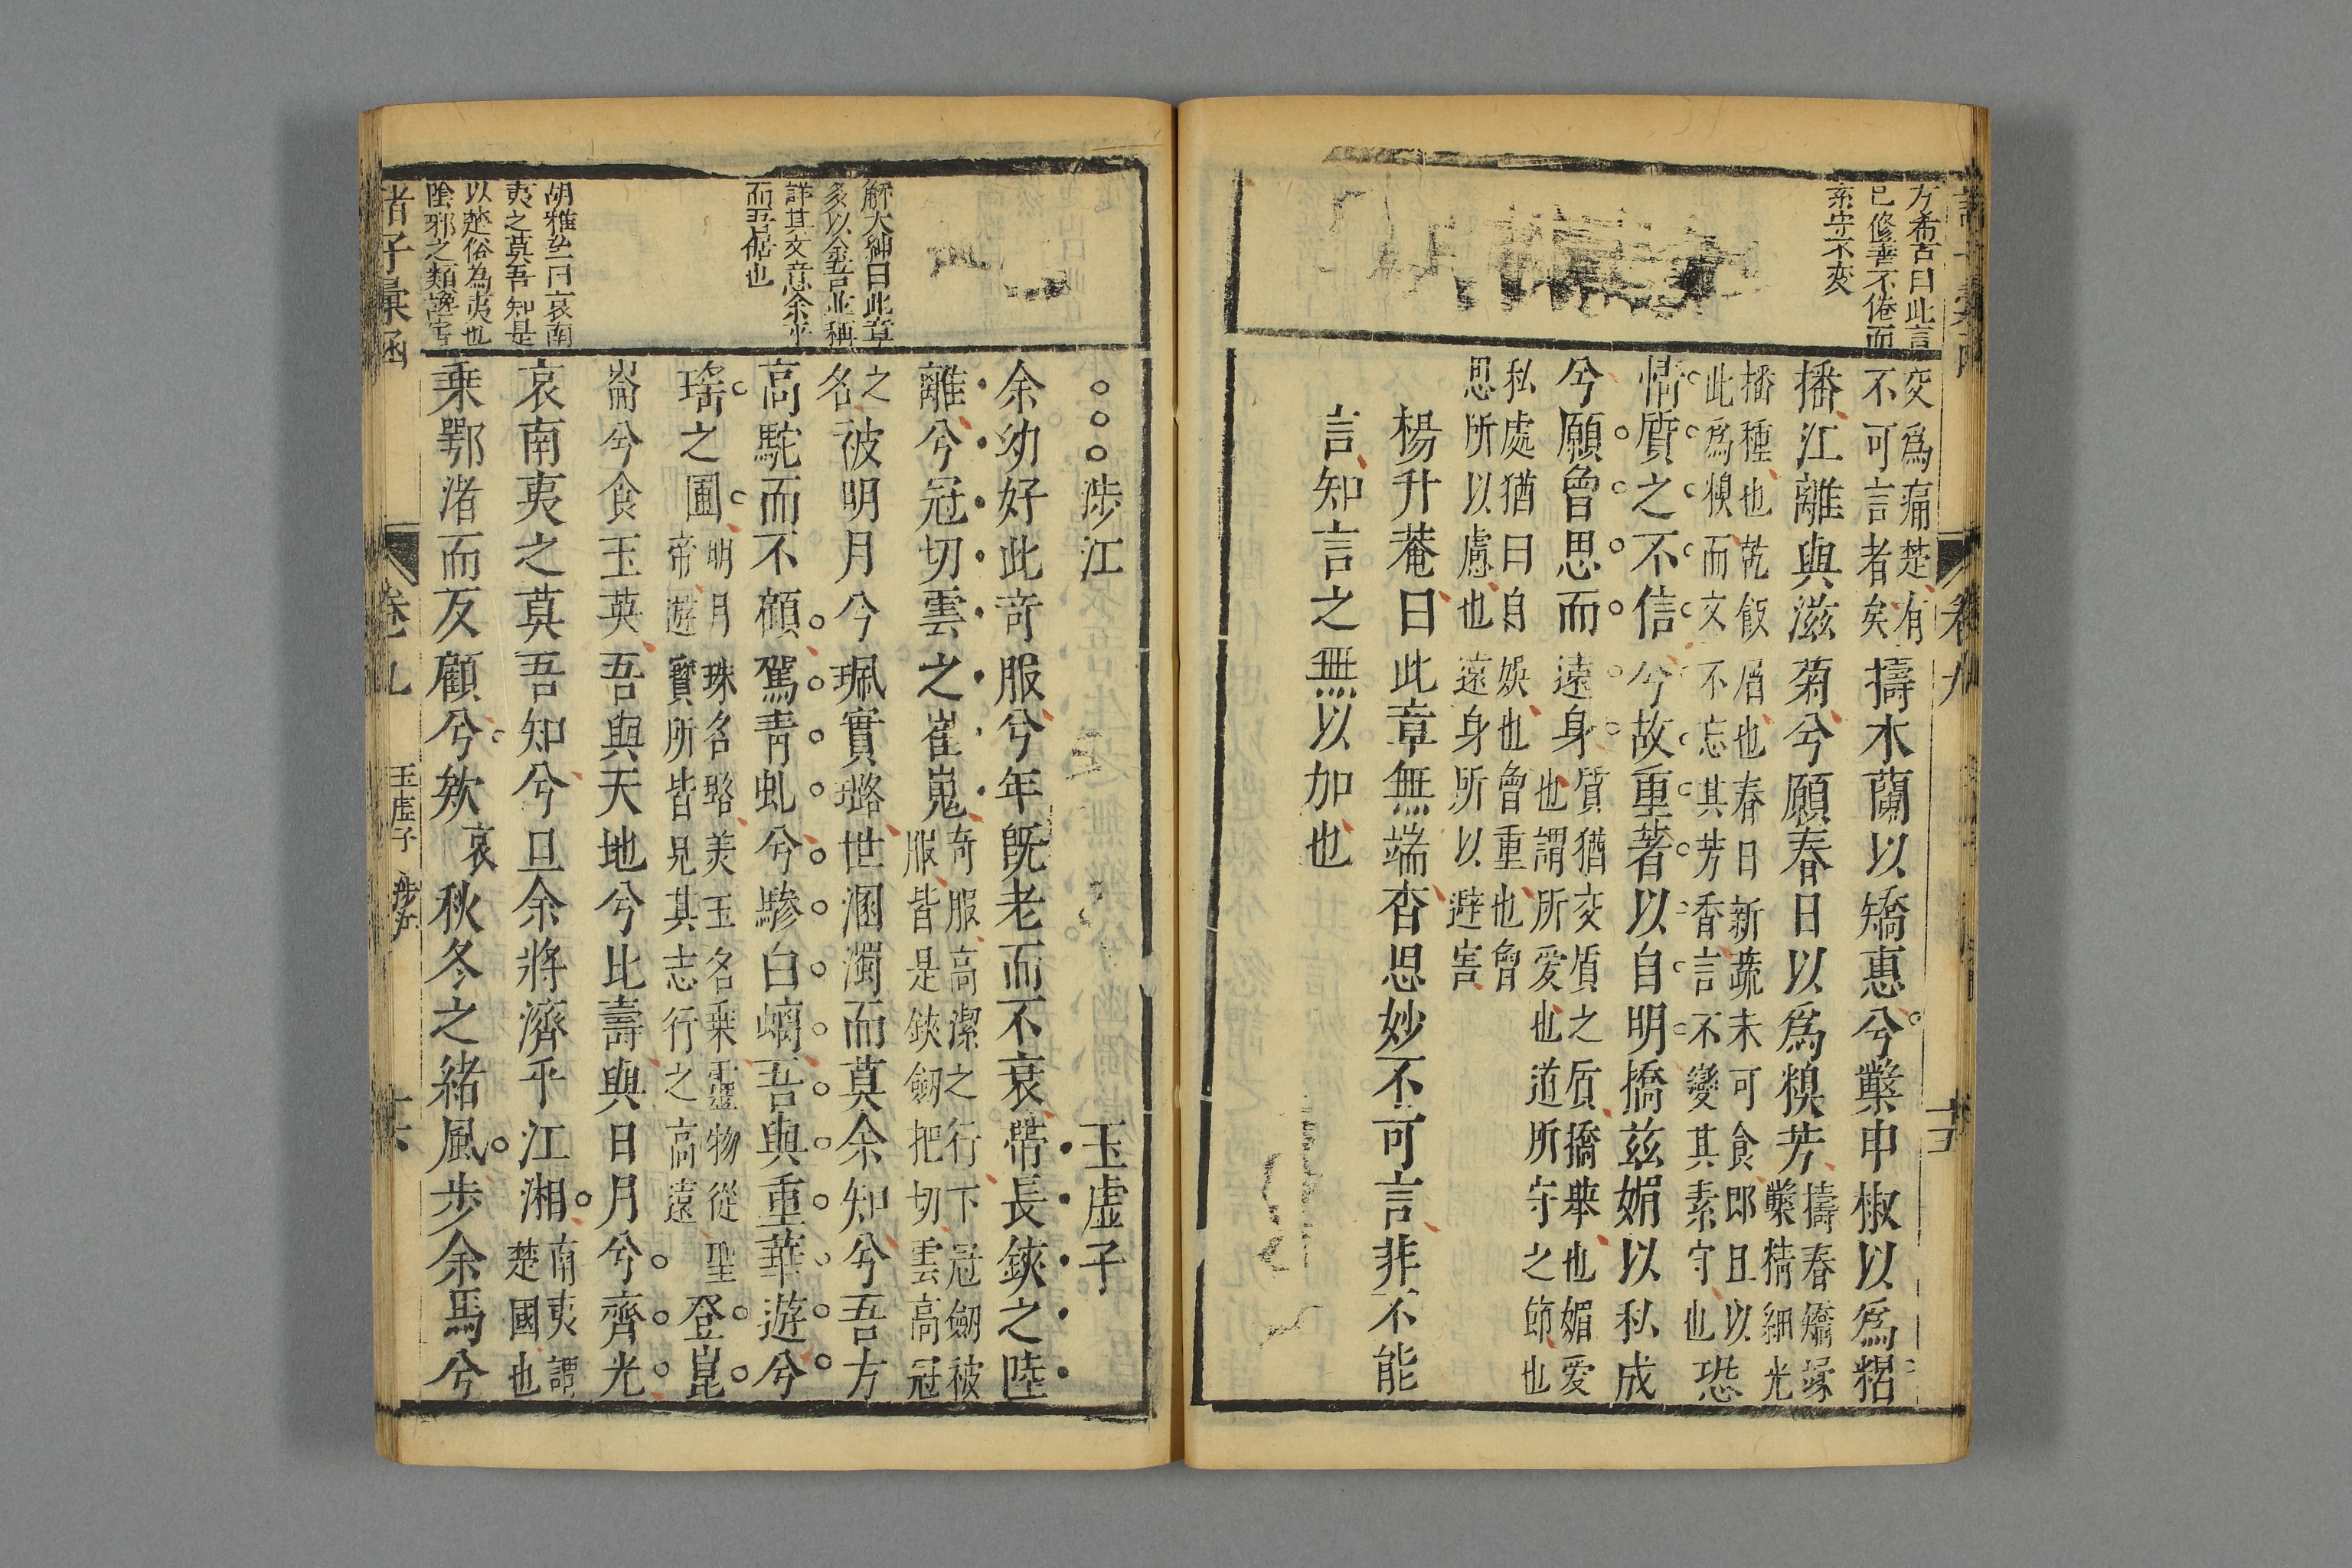 方希古曰此言
已修善不倦而
素守不变
交爲痛楚有
不可言者矣
擣木蘭以矯惠兮糳申椒以爲糧
播江離與滋菊兮願春日以爲糗芳
擣舂矯揉
糳精細光
播種也乾飯屑也春日新蔬未可食即且以
此爲糗而文不忘其芳香言不變其素守也
恐
情質之不信兮故重著以自明撟茲媚以私成
兮願曾思而遠身
質猶交質之质撟舉也媚爱
也謂所爱也道所守之節也
私處猶曰自娛也曾重也曾
思所以慮也遠身所以避害
楊升菴曰此章無端杳思妙不可言非不能
言知言之無以加也
卷九
十五
解大紳曰此章
多以余吾並稱
詳其文意余平
而吾倨也
胡雅
曰哀南
夷之莫吾知是
以楚俗為夷也
陰邪之類讒害
涉江
玉虛子
余幼好此竒服兮年旣老而不衰帶長鋏之陸
離兮冠切雲之崔嵬
竒服高潔之行下冠劒被
服皆是鋏劒把切雲高冠
之
名
被明月兮珮實璐世溷濁而莫余知兮吾方
高駝而不顧駕青虬兮驂白螭吾與重華遊兮
瑤之圃
明月珠名璐美玉名乗靈物從聖
帝遊寶所皆見其志行之高遠
登崑
崙兮食玉英吾與天地兮比壽與日月兮齊光
哀南夷之莫吾知兮旦余將濟乎江湘
南夷謂
楚國也
乗鄂渚而反顧兮欸
哀
秋冬之緒風步余馬兮
者子彙函
卷九
玉虛子
涉江
十六